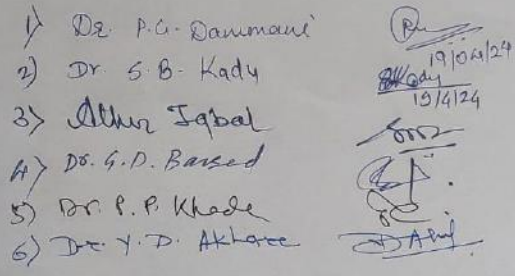 1) Dr. P.G. Dammani
19/04/24
2) Dr S.B. Kady
19/4/24
3) Iqbal
4) Dr. G.D. Barsed
5) Dr. P. P. Khade
6) Dr. Y. D. Akhare